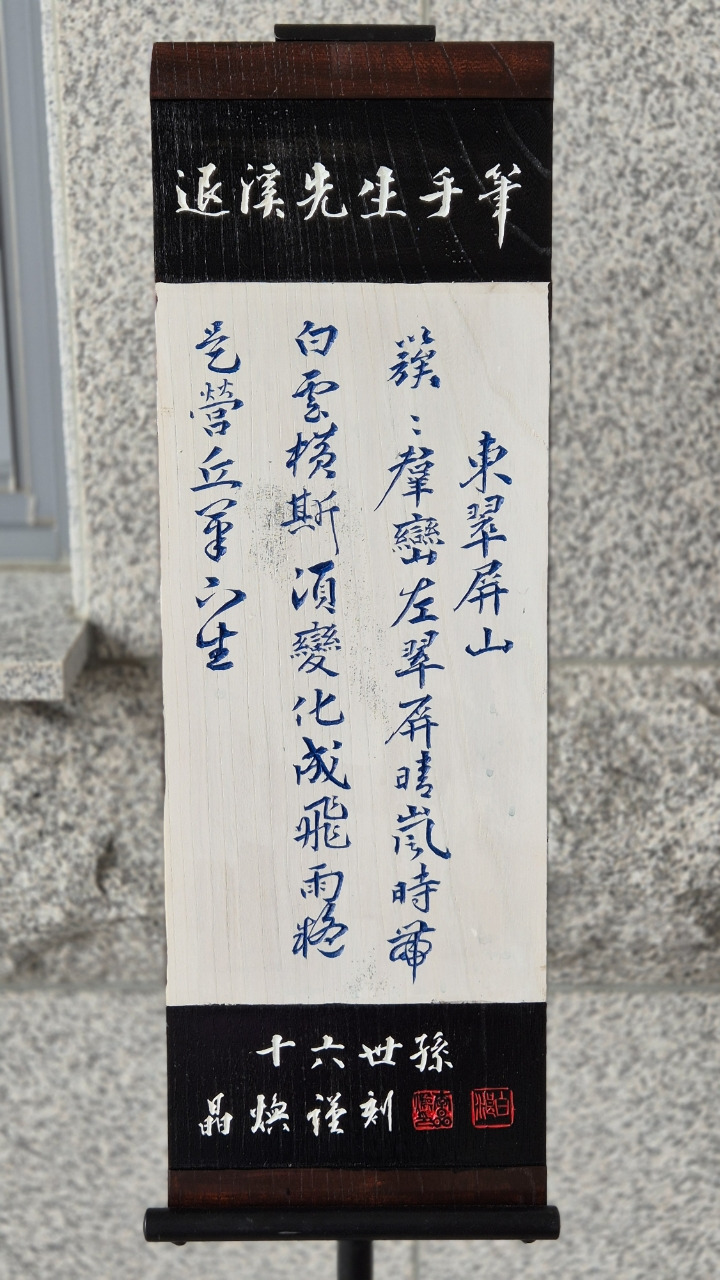 退溪先生手筆
東翠屏山
簇〻羣巒左翠屏晴嵐時帶
白雲横斯須變化成飛雨疑
是營丘筆下生
十六世孫
晶煥謹刻